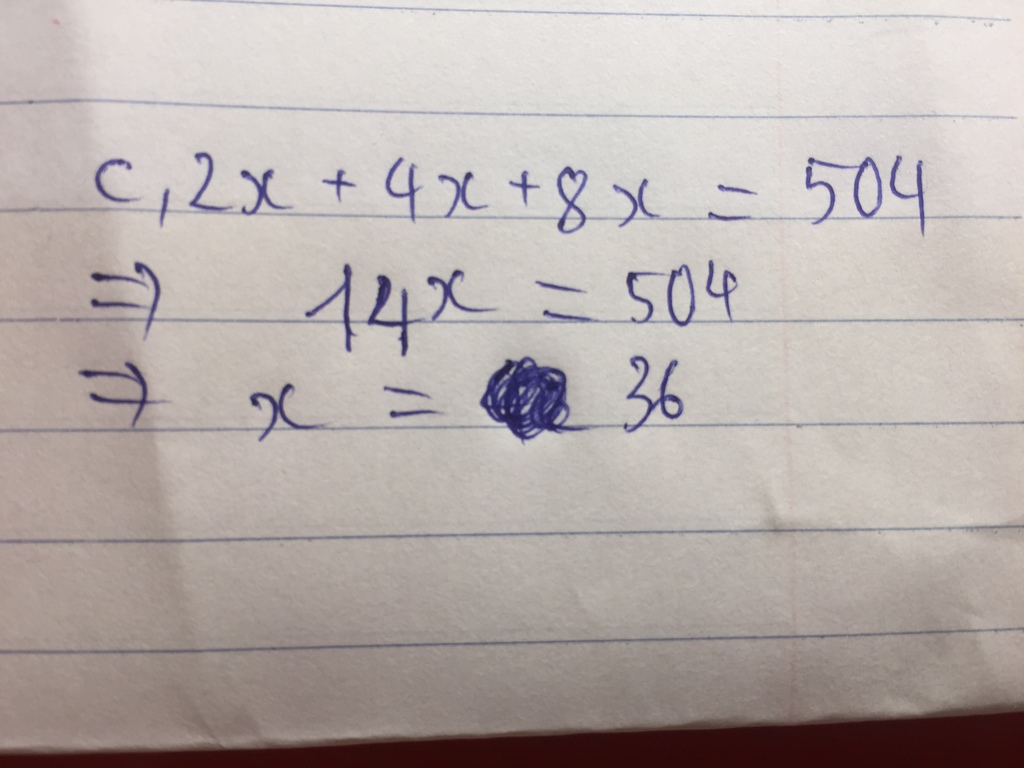 c, 2x + 4x + 8x = 504
⇒ 14x = 504
⇒ x = 36